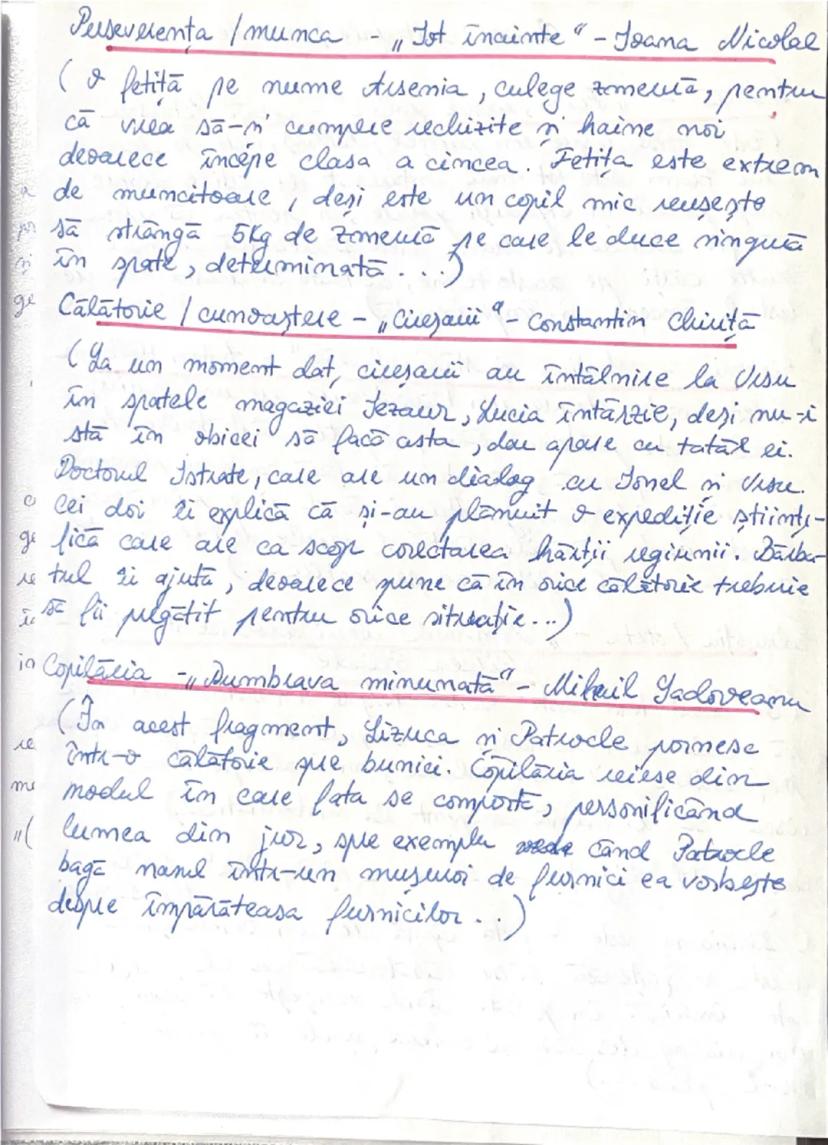 Perseverența / munca - „Tot înainte“ - Ioana Nicolae
( O fetiță pe nume Arsenia, culege zmeură, pentru
că vrea să-și cumpere rechizite și haine noi
deoarece începe clasa a cincea. Fetița este extrem
de muncitoare, deși este un copil mic reușește
să strângă 5Kg de zmeură pe care le duce singură
în spate, determinată...)
Călătorie / cunoaștere - „Cireșarii“ - Constantin Chiriță
(La un moment dat, cireșarii au întâlnire la Ursu
în spatele magaziei Tezaur, Lucia întârzie, deși nu-i
stă în obicei să facă asta, dar apare cu tatăl ei.
Doctorul Istrate, care are un dialog cu Ionel și Ursu.
Cei doi îi explică că și-au plănuit o expediție științi-
fică care are ca scop corectarea hărții regiunii. Bărba-
tul îi ajută, deoarece spune că în orice călătorie trebuie
să fii pregătit pentru orice situație...)
Copilăria - „Dumbrava minunată“ - Mihail Sadoveanu
(În acest fragment, Lizuca și Patrocle pornesc
într-o călătorie spre bunici. Copilăria reiese din
modul în care fata se comportă, personificând
lumea din jur, spre exemplu când Patrocle
bagă nasul într-un mușuroi de furnici ea vorbește
despre împărăteasa furnicilor...)